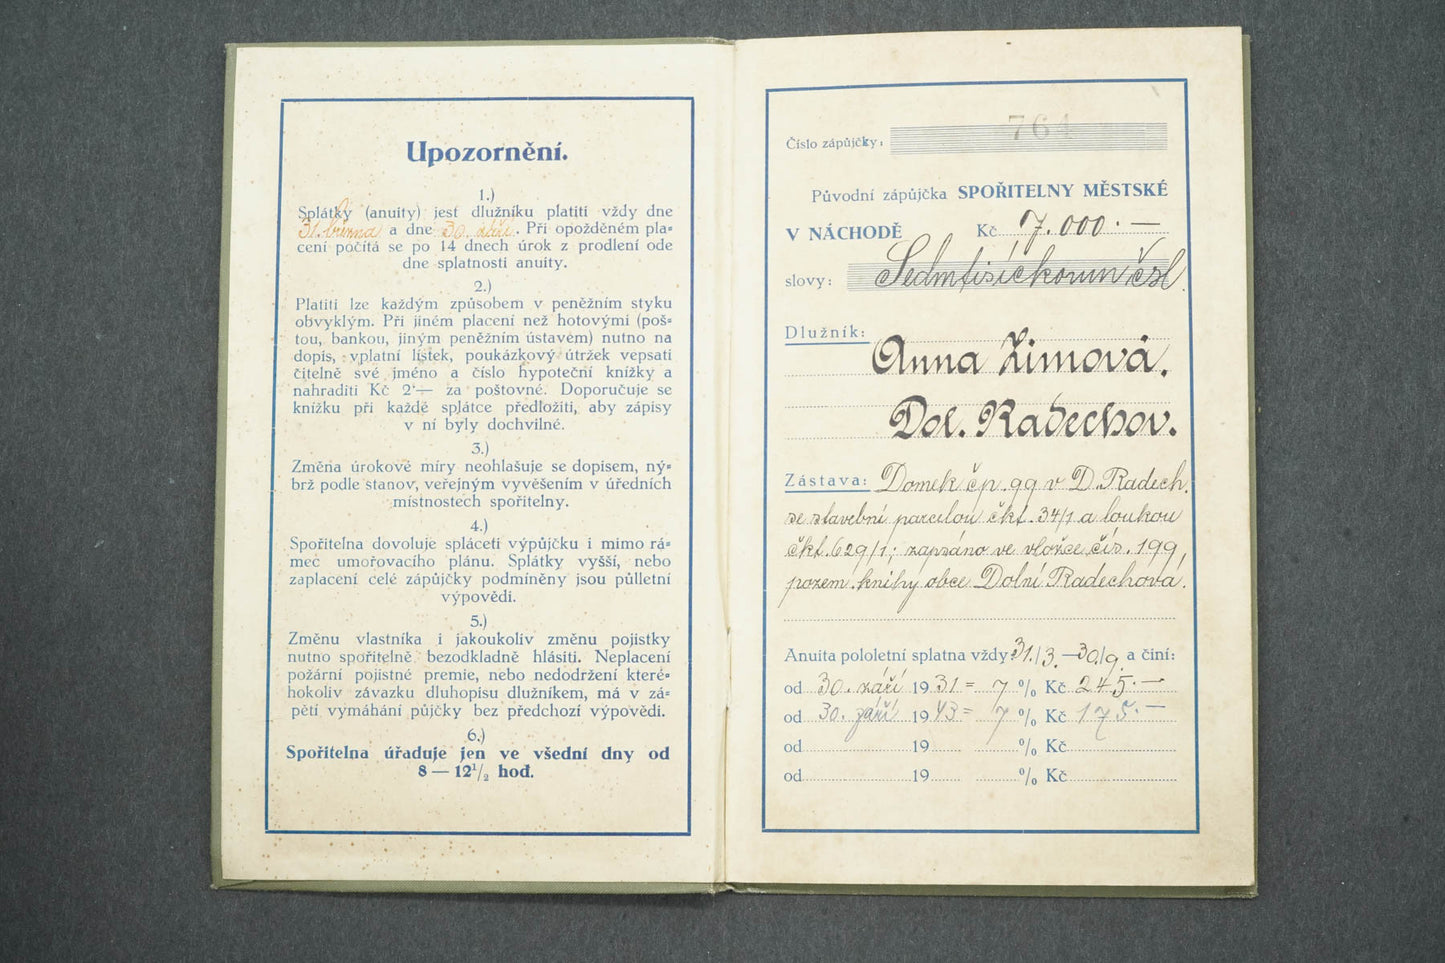 Upozornění.
1.)
Splátky (anuity) jest dlužníku platiti vždy dne
31. března a dne 30. září. Při opožděném pla=
cení počítá se po 14 dnech úrok z prodlení ode
dne splatnosti anuity.
2.)
Platiti lze každým způsobem v peněžním styku
obvyklým. Při jiném placení než hotovými (poš=
tou, bankou, jiným peněžním ústavem) nutno na
dopis, vplatní lístek, poukázkový útržek vepsati
čitelně své jméno a číslo hypoteční knížky a
nahraditi Kč 2·— za poštovné. Doporučuje se
knížku při každé splátce předložiti, aby zápisy
v ní byly dochvilné.
3.)
Změna úrokové míry neohlašuje se dopisem, ný=
brž podle stanov, veřejným vyvěšením v úředních
místnostech spořitelny.
4.)
Spořitelna dovoluje spláceti výpůjčku i mimo rá=
mec umořovacího plánu. Splátky vyšší, nebo
zaplacení celé zápůjčky podmíněny jsou půlletní
výpovědí.
5.)
Změnu vlastníka i jakoukoliv změnu pojistky
nutno spořitelně bezodkladně hlásiti. Neplacení
požární pojistné premie, nebo nedodržení které=
hokoliv závazku dluhopisu dlužníkem, má v zá=
pětí vymáhání půjčky bez předchozí výpovědi.
6.)
Spořitelna úřaduje jen ve všední dny od
8 — 12½ hod.
Číslo zápůjčky: 764
Původní zápůjčka SPOŘITELNY MĚSTSKÉ
V NÁCHODĚ Kč 7.000.—
slovy: Sedmtisíckorun čsl.
Dlužník:
Anna Zimová.
Dol. Radechov.
Zástava: Domek čp. 99 v D. Radech.
se stavební parcelou čkt. 34/1 a loukou
čkt. 629/1; zapsáno ve vložce čís. 199,
pozem. knihy obce Dolní Radechová.
Anuita pololetní splatna vždy 31./3. — 30./9. a činí:
od 30. září 1931 = 7 % Kč 245.—
od 30. září 1943 = 7 % Kč 175.—
od 19 % Kč
od 19 % Kč